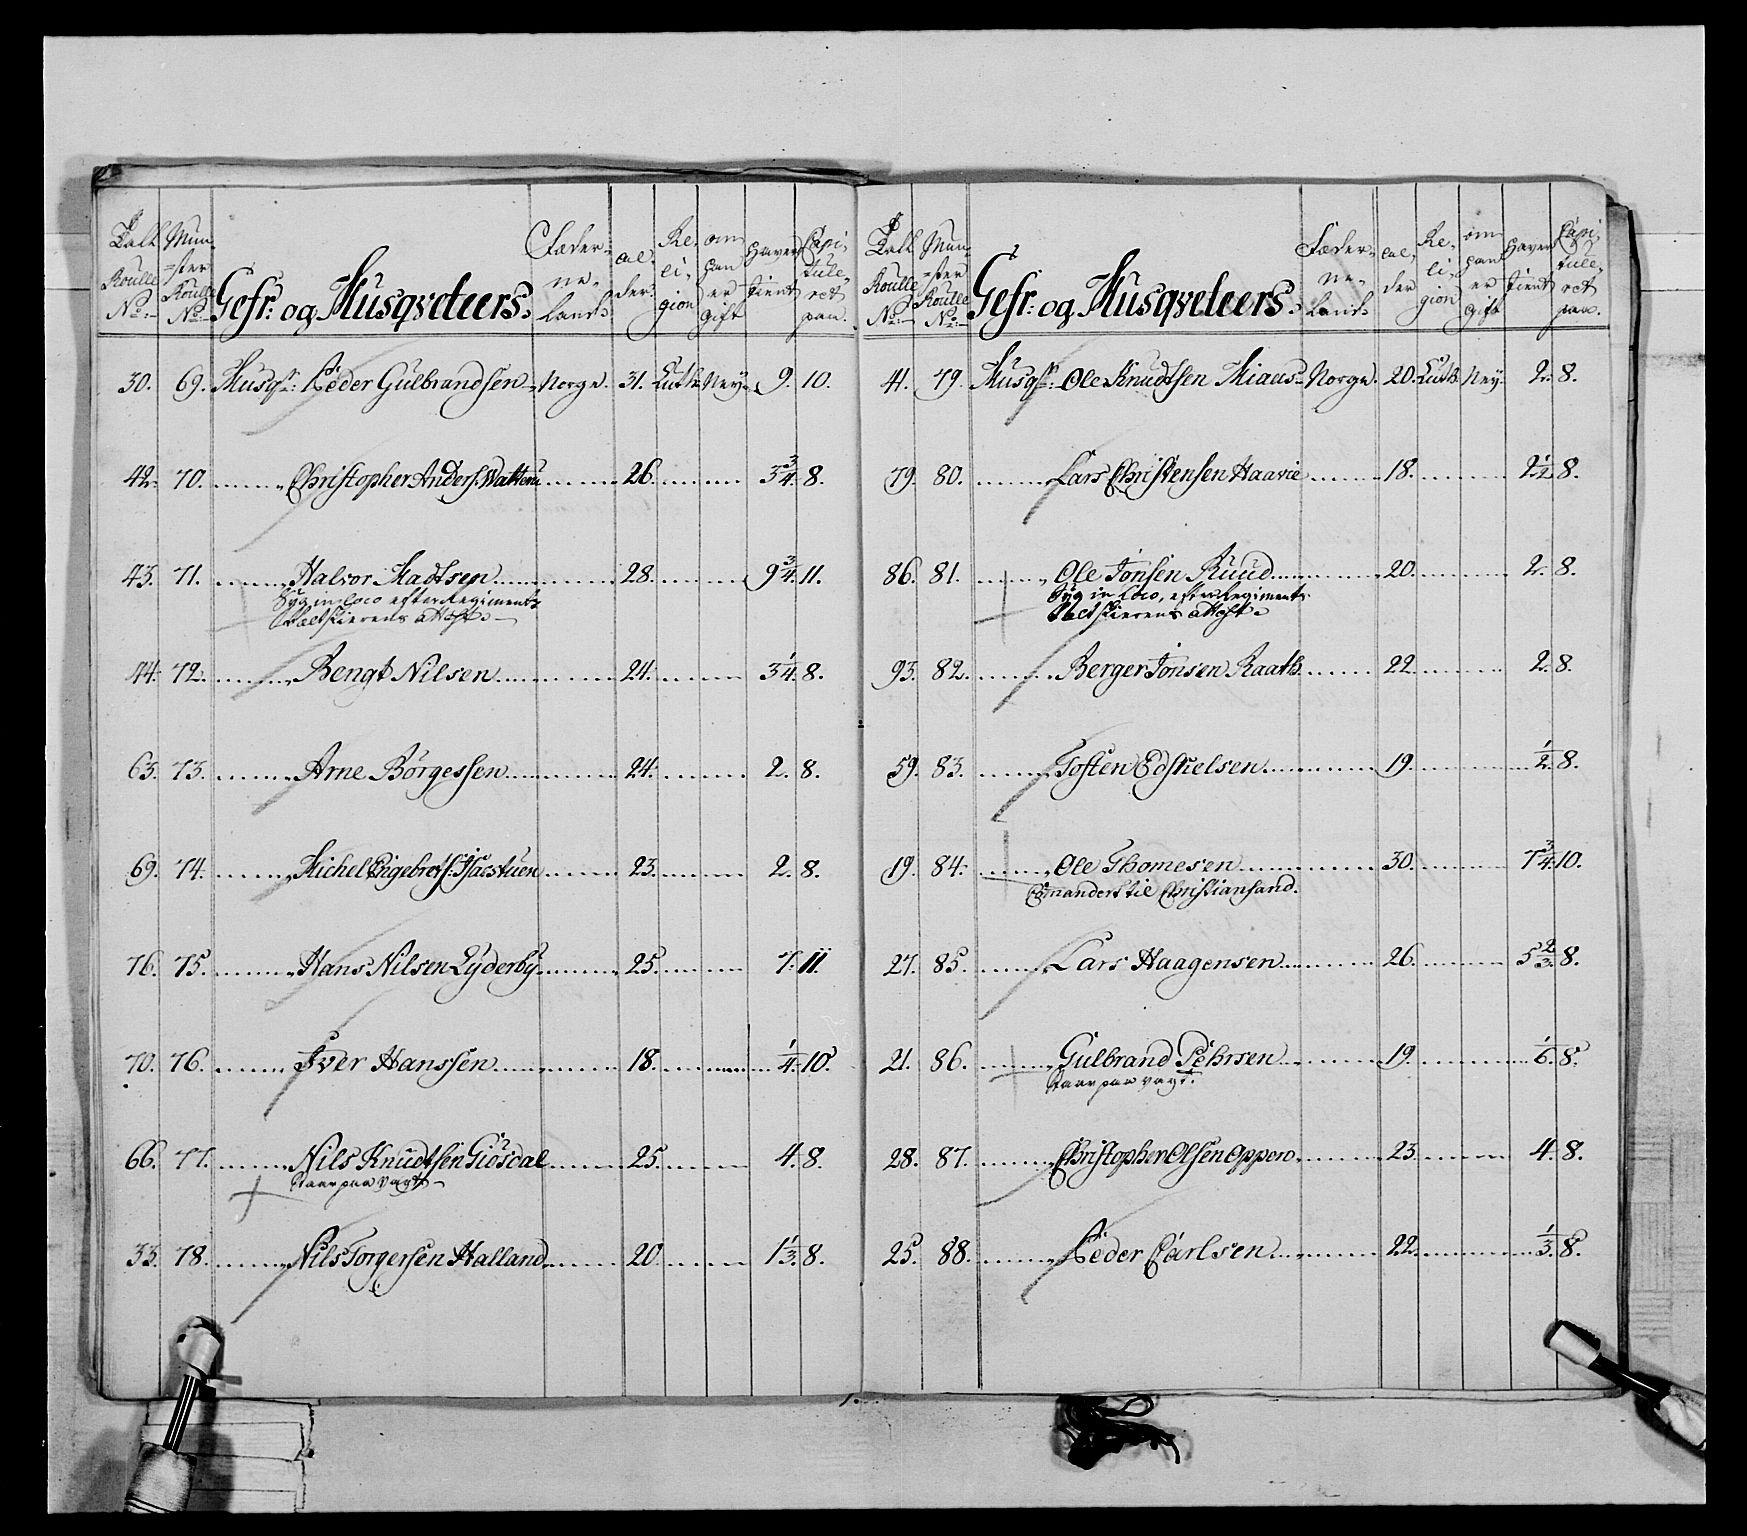 Tall Roulle No:
Mun=ster Roulle No:
Gefr: og Musqveteers:
Fæder=ne=land:
al=der:
Re=li=gion
om han er gift
Haver tient
Capi=tule=ret paa.
30. 69. Musqr: Peder Gulbrandsen Norge. 31. Luth: Ney. 9. 10.
42. 70. Christopher Anders: 26. 3 3/4. 8.
43. 71. Halvor Madtsen 28. 9 3/4. 11.
Syg in loco efter Regiments
Feltskierens attest.
44. 72. Bengt Nilsen 24. 3 1/4. 8.
63. 73. Arne Börgessen 24. 2. 8.
69. 74. Michel Engebrets: 23. 2. 8.
76. 75. Hans Nilsen Lyderby 25. 7. 11.
70. 76. Iver Hanssen 18. 1/4. 10.
66. 77. Nils Knudtsen Giösdal 25. 4. 8.
Staar paa vagt.
33. 78. Nils Torgersen Halland 20. 1 1/3. 8.
Tall Roulle No:
Mun=ster Roulle No:
Gefr: og Musqveteers:
Fæder=ne=land:
al=der
Re=li=gion
om han er gift
Haver tient
Capi=tule=ret paa.
41. 79. Musqr: Ole Knudtsen Miaus Norge. 20. Luth. Ney. 2. 8.
79. 80. Lars Christensen Haavie 18. 2 1/2. 8.
86. 81. Ole Jonsen Ruud 20. 2. 8.
Syg in loco, efter Regiments
Feltskierens attest.
93. 82. Berger Jonsen Raath 22. 2. 8.
59. 83. Tosten Edskielsen 19. 1/2. 8.
19. 84. Ole Thomesen 30. 7 3/4. 10.
Comandert til Christiansand.
27. 85. Lars Haagensen 26. 5 2/3. 8.
21. 86. Gulbrand Pehrsen 19. 1/6. 8.
Staar paa vagt.
28. 87. Christopher Olsen Oppero 23. 4. 8.
25. 88. Peder Carlsen 22. 1/3. 8.